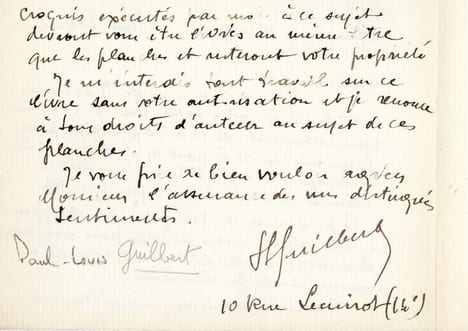 croquis exécutés par moi à ce sujet
devront vous être livrés au même titre
que les planches et resteront votre propriété
Je m'interdis tout travail sur ce
livre sans votre autorisation et je renonce
à tous droits d'auteur au sujet de ces
planches.
Je vous prie de bien vouloir agréer
Monsieur l'assurance de mes distingués
sentiments.
Paul-Louis Guilbert
Guilbert
10 Rue (14e)